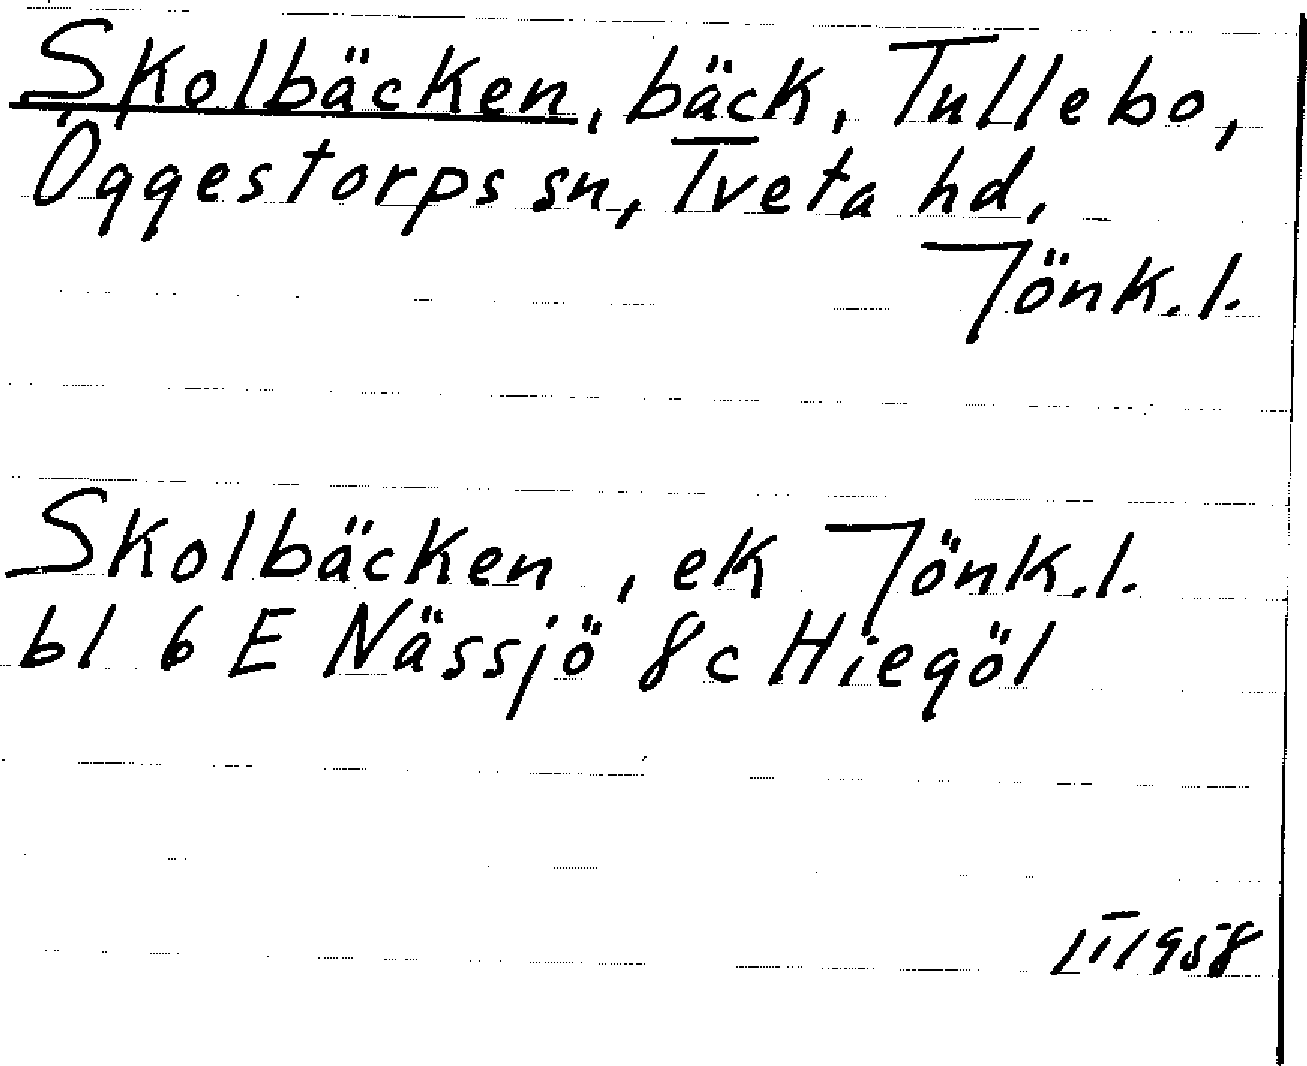 Skolbäcken, bäck, Tullebo,
Öggestorps sn, Tveta hd,
Jönk.l.
Skolbäcken, ek Jönk.l.
bl 6 E Nässjö 8c Hiegöl
LT 1958